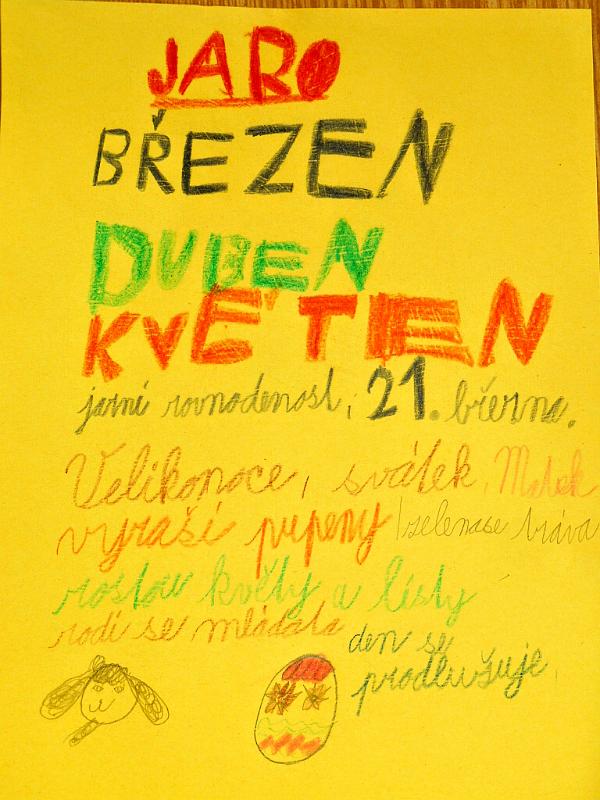 JARO
BŘEZEN
DUBEN
KVĚTEN
jarní rovnodenost, 21. března.
Velikonoce, svátek Matek
vyraší pupeny zelenase tráva
rostou květy a listy
rodí se mláďata
den se
prodlužuje